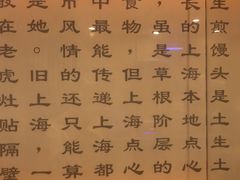 生煎馒头是土生土
长的上海本地点心
，虽是草根阶层的
食物，但上海点心
中最能传递上海都
市风情的还只能算
是她。旧上海，一
设在老虎灶贴隔壁